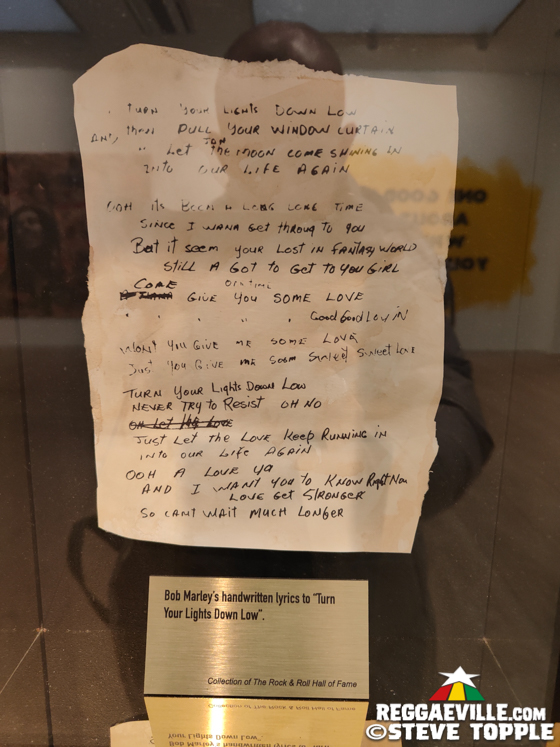 TURN YOUR LIGHTS DOWN LOW
AND, then PULL YOUR WINDOW CURTAIN
JAH
" LET the MOON COME SHINING IN
INTO OUR LIFE AGAIN
OOH ITS BEEN A LONG LONG TIME
SINCE I WANA GET throug to you
But it seem YOUR LOST IN FANTASY WORLD
STILL A GOT TO GET TO YOU GIRL
COME
GIVE YOU SOME LOVE
" " " " Good Good LOVIN
WONT YOU GIVE ME SOME LOVE
JUST YOU GIVE ME SOOM SWEET SWEET LOVE
TURN YOUR LIGHTS DOWN LOW
NEVER TRY TO RESIST OH NO
OH LET the LOVE
JUST LET THE LOVE KEEP RUNNING IN
INTO OUR LIFE AGAIN
OOH A LOVE YA
AND I WANT YOU to KNOW Right Now
LOVE GET STRONGER
SO CANT WAIT MUCH LONGER
Bob Marley's handwritten lyrics to "Turn
Your Lights Down Low".
Collection of The Rock & Roll Hall of Fame
REGGAEVILLE.com
©STEVE TOPPLE